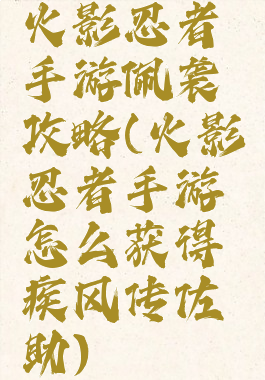 火影忍者
手游佩裳
攻略(火影
忍者手游
怎么获得
疾风传佐
助)